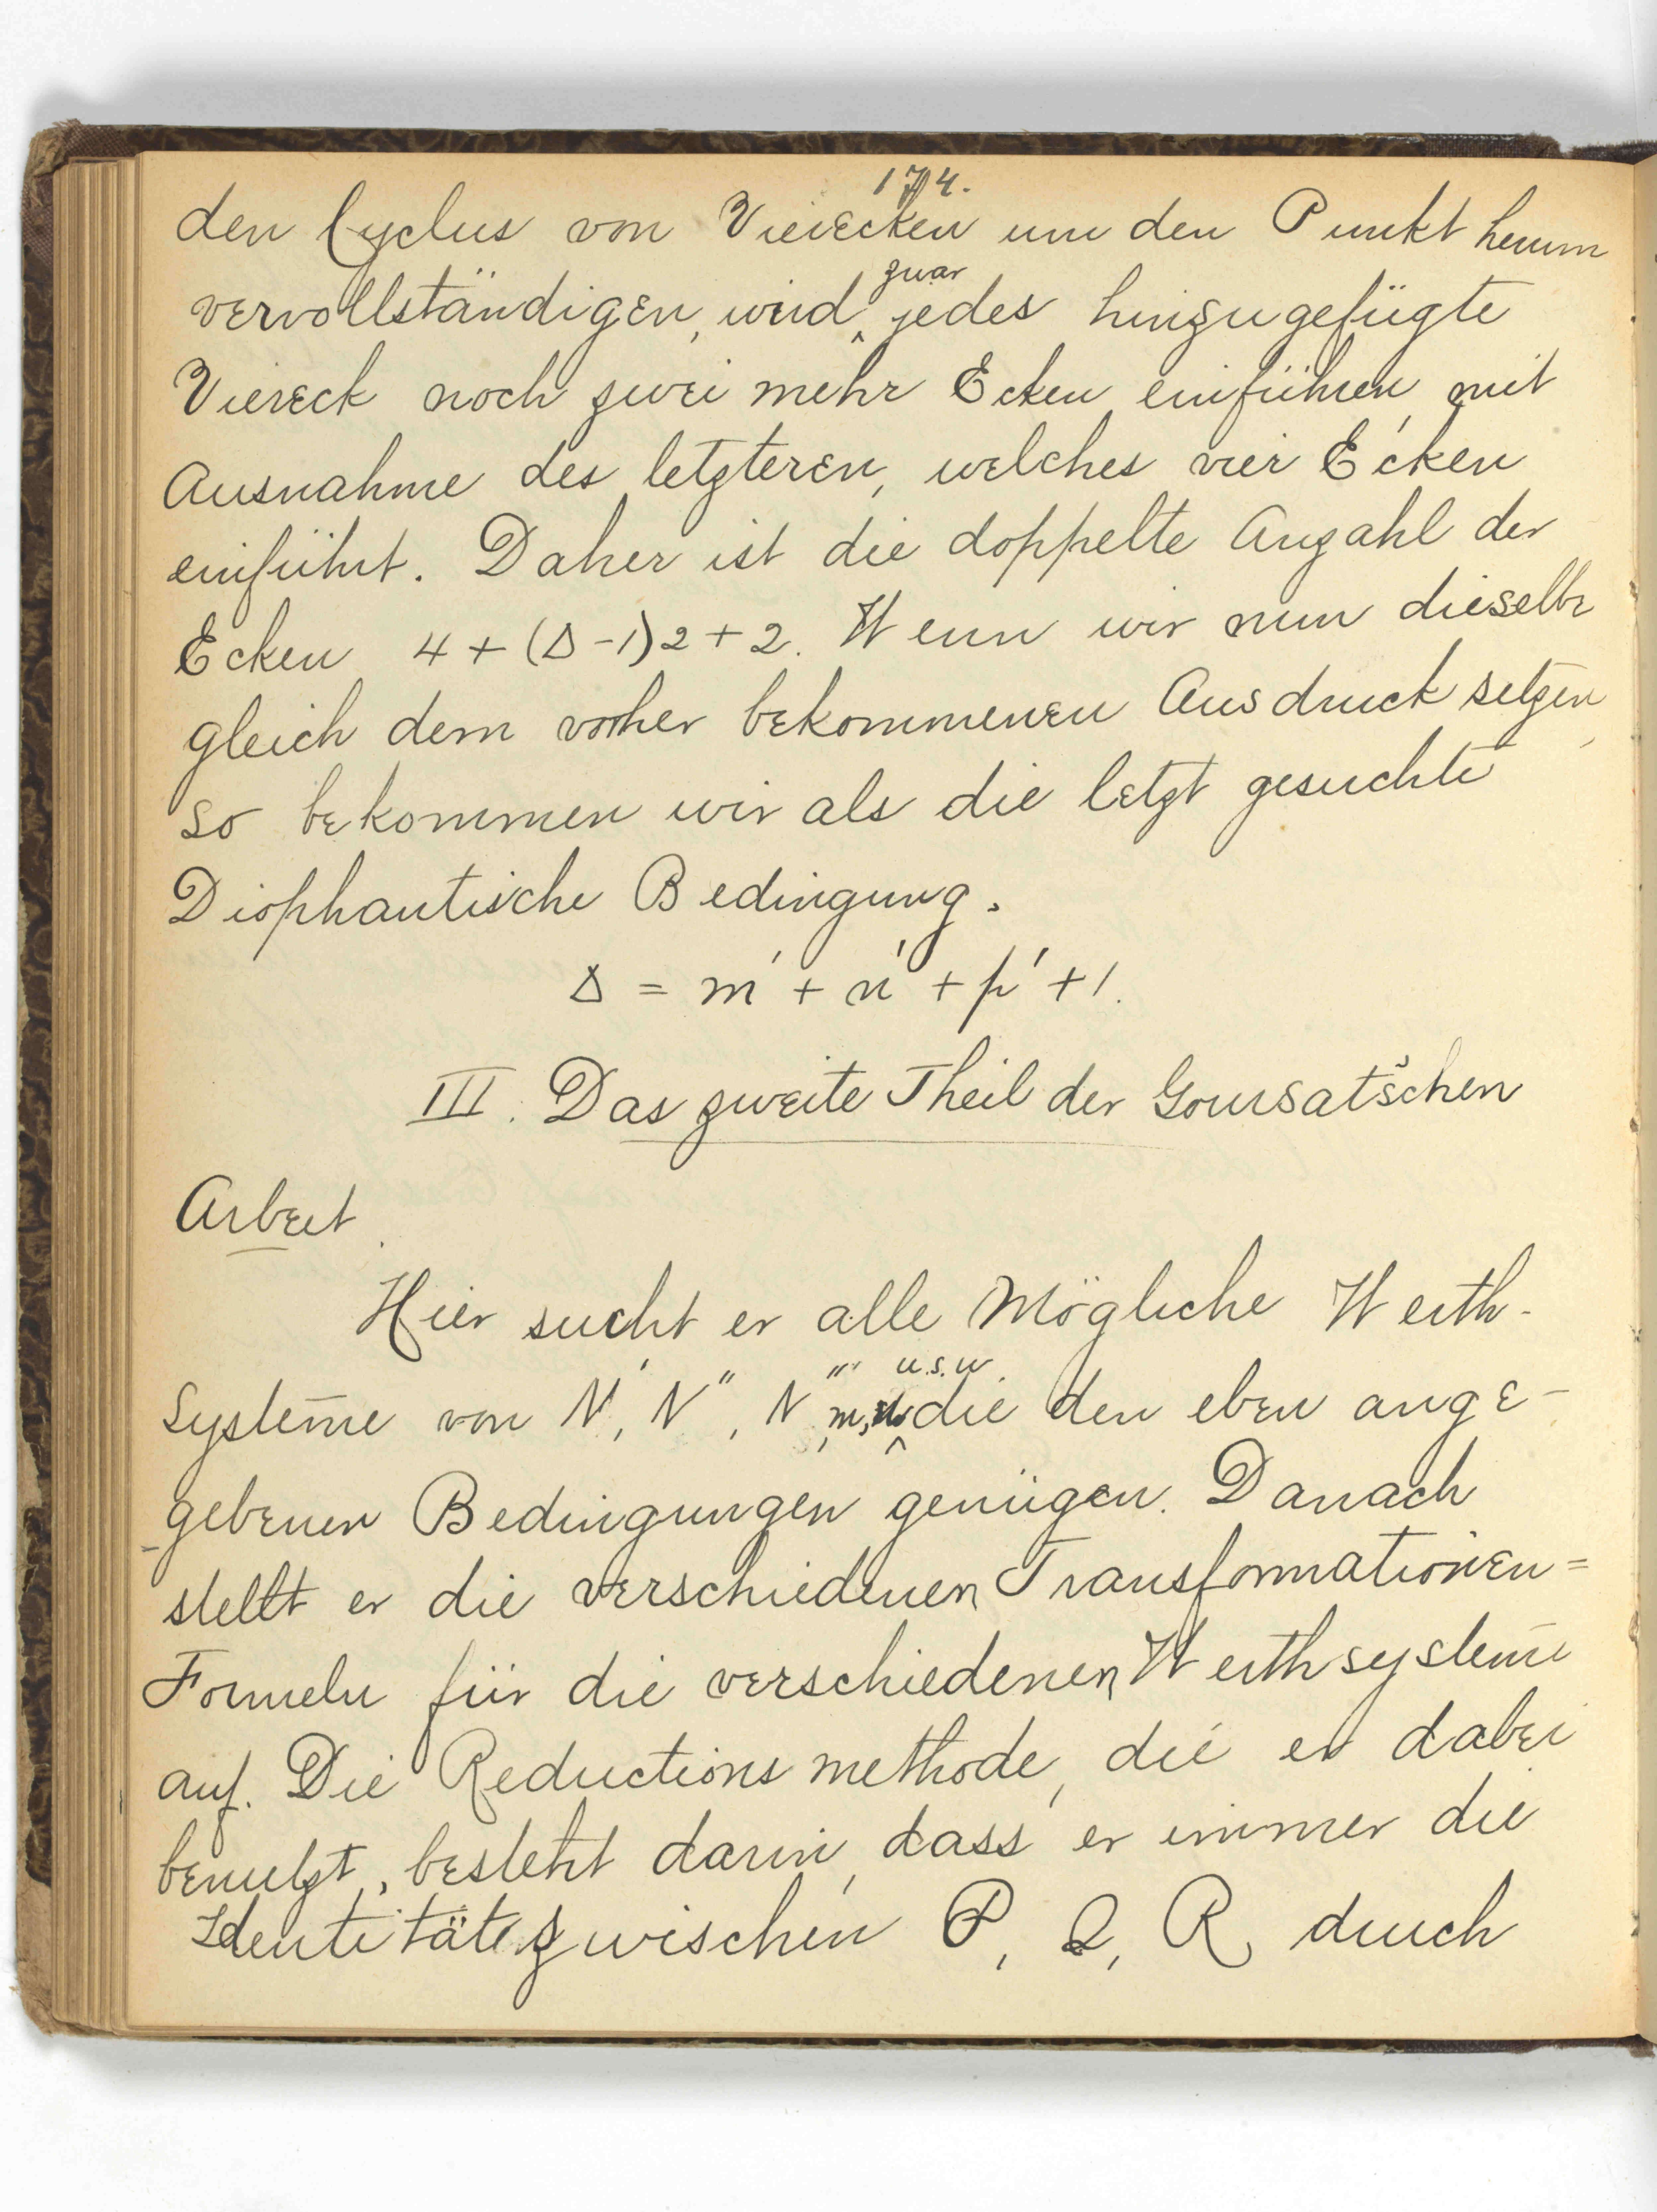 174.
den Cyclus von Vierecken um den Punkt herum
vervollständigen, wird zwar jedes hinzugefügte
Viereck noch zwei mehr Ecken einführen, mit
Ausnahme des letzteren, welches vier Ecken
einführt. Daher ist die doppelte Anzahl der
Ecken 4 + (Δ - 1)2 + 2. Wenn wir nun dieselbe
gleich dem vorher bekommenen Ausdruck setzen,
so bekommen wir als die letzt gesuchte
Diophantische Bedingung.
Δ = m' + n' + p' + 1.
III. Das zweite Theil der Goursat'schen
Arbeit.
Hier sucht er alle Mögliche Werth-
Systeme von N', N'', N''', m, n u.s.w. die den eben ange-
gebenen Bedingungen genügen. Danach
stellt er die verschiedenen Transformationen=
Formeln für die verschiedenen Werthsysteme
auf. Die Reductionsmethode, die er dabei
benutzt, besteht darin, dass er immer die
Identität zwischen P, Q, R durch